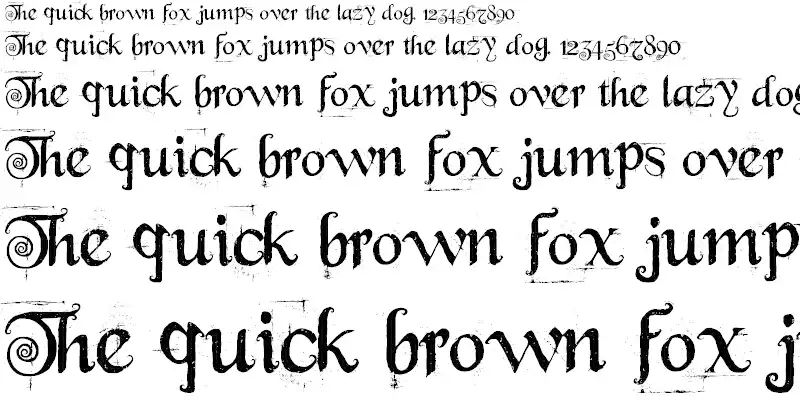 The quick brown fox jumps over the lazy dog. 1234567890
The quick brown fox jumps over the lazy dog. 1234567890
The quick brown fox jumps over the lazy dog
The quick brown fox jumps over
The quick brown fox jump
The quick brown fox j